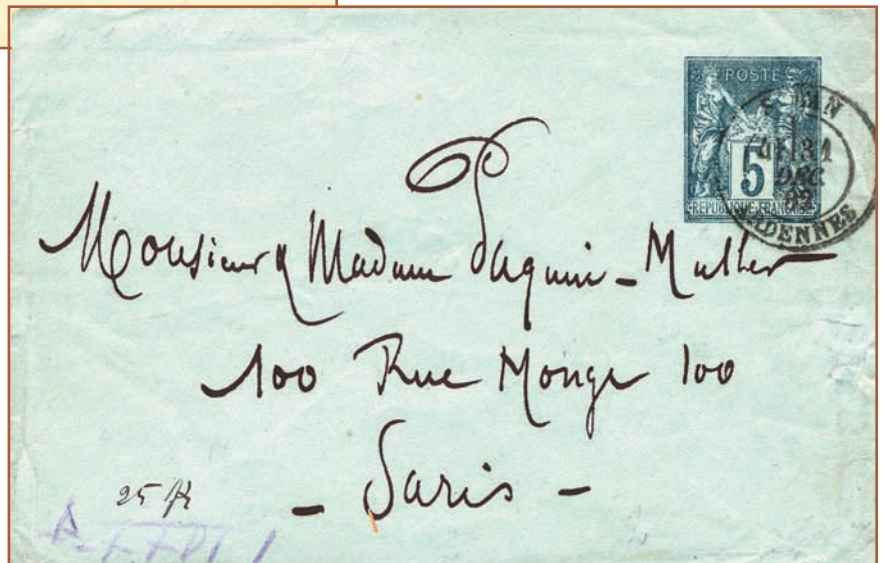 POSTES
5
REPUBLIQUE FRANÇAISE
31
DEC
ARDENNES
Monsieur & Madame Paquin - Muller
100 Rue Monge 100
- Paris -
25 fr